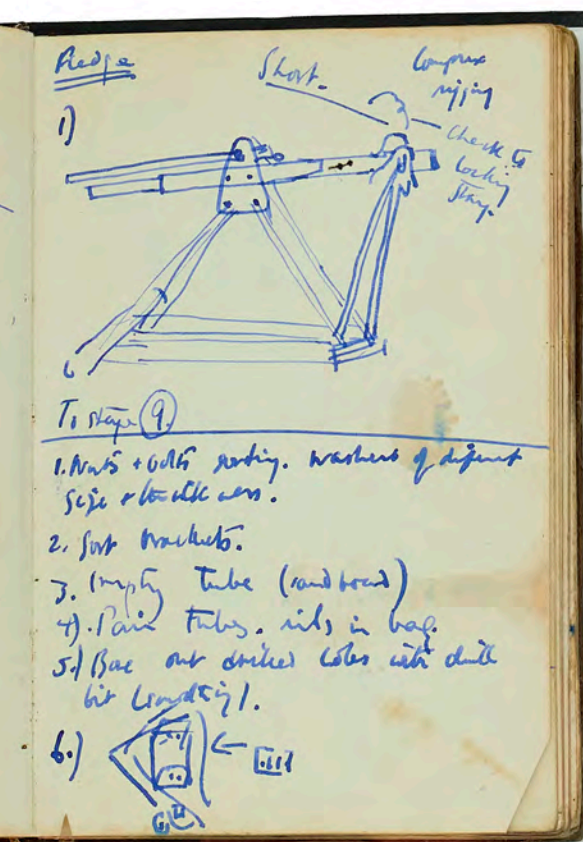 Short.
Complex
rigging
1)
Check to
locking
stay.
To stage 9.
1. Nuts + bolts sorting. washers of different
size + thickness.
2. Sort brackets.
3. Empty tube (
4). Pair Tubes. in bag.
5.) out drilled holes with drill
bit
6.)